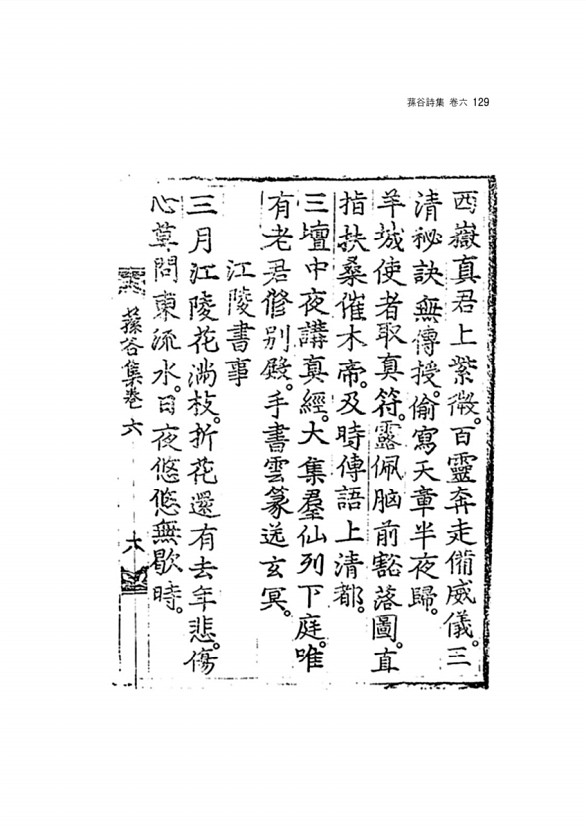 蓀谷詩集 卷六 129
西嶽真君上紫微。百靈奔走備威儀。三
清秘訣無傳授。偷寫天章半夜歸。
羊城使者取真符。露佩腦前豁落圖。直
指扶桑催木帝。及時傳語上清都。
三壇中夜講真經。大集羣仙列下庭。唯
有老君修別殿。手書雲篆送玄冥。
江陵書事
三月江陵花滿枝。折花還有去年悲。傷
心莫問東流水。日夜悠悠無歇時。
蓀谷集卷六